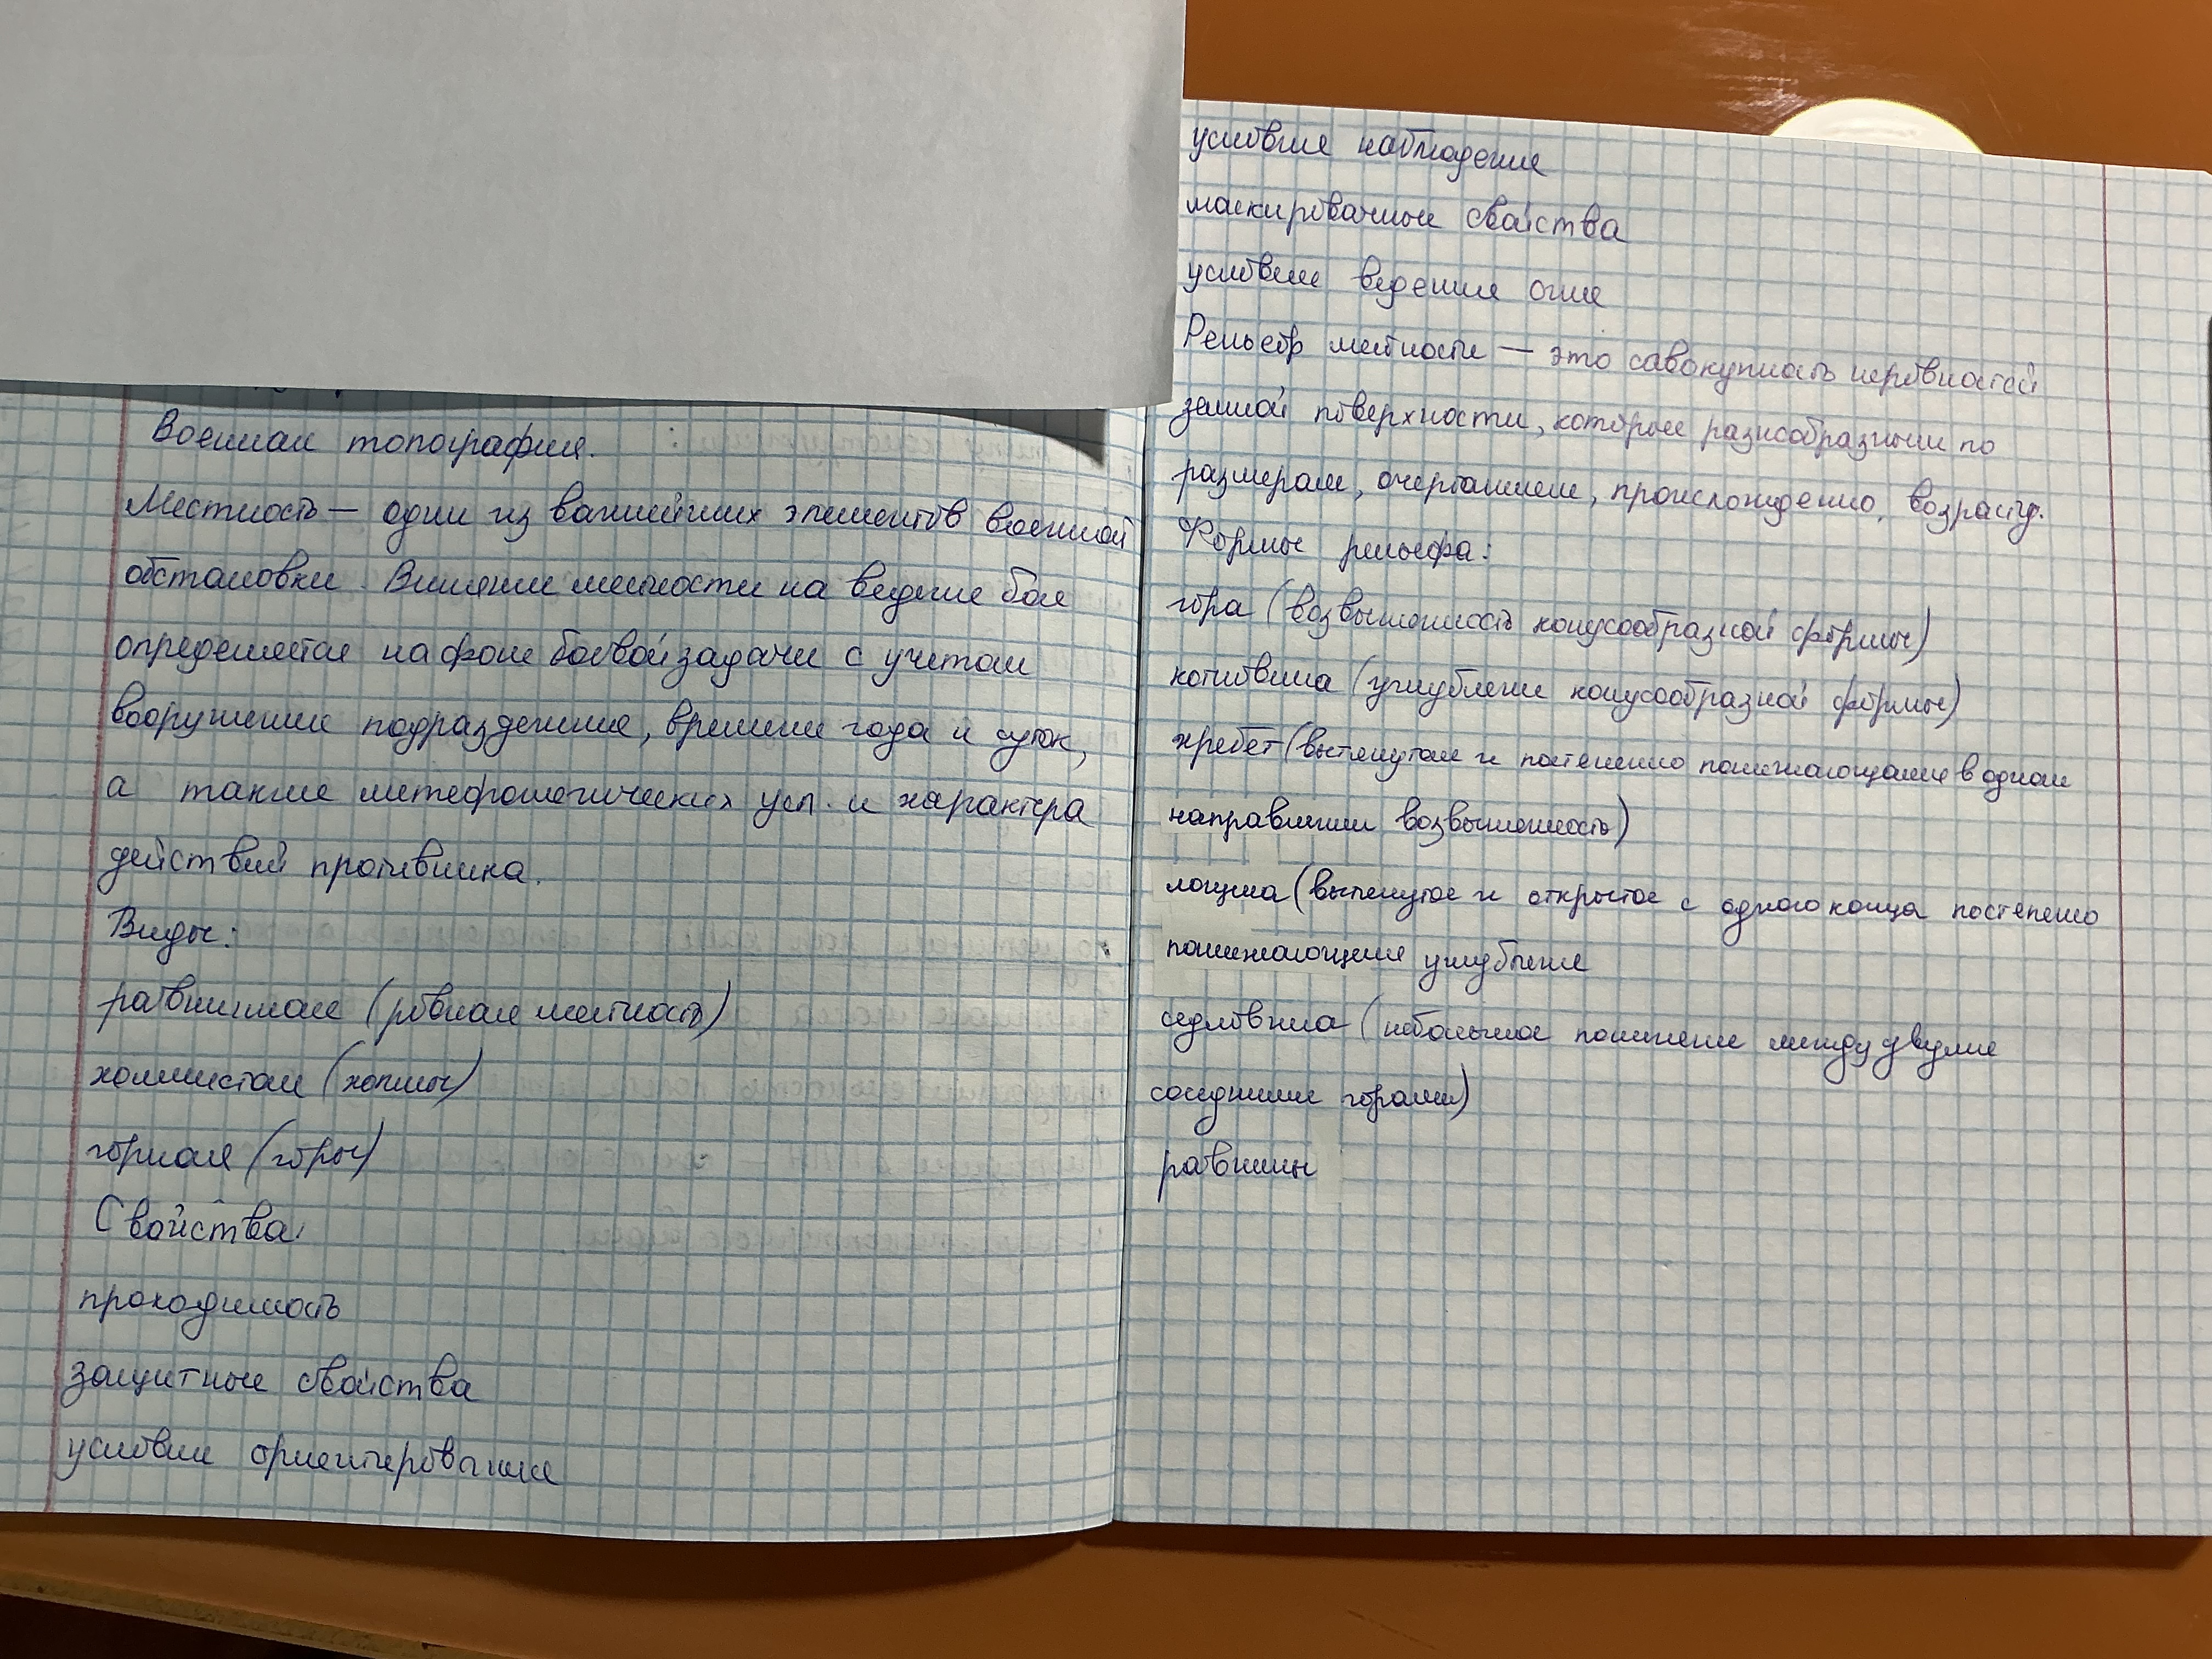 Военная топография.
Местность — один из важнейших элементов военной
обстановки. Влияние местности на ведение боя
определяется на фоне боевой задачи с учетом
вооружения подразделения, времени года и суток,
а также метеорологических усл. и характера
действий противника.
Виды:
равнинная (ровная местность)
холмистая (холмы)
горная (горы)
Свойства:
проходимость
защитные свойства
условия ориентирования
условие наблюдение
маскировочные свойства
условие ведения огня
Рельеф местности — это савокупность неровностей
земной поверхности, которые разнообразными по
размерам, очертанием, происхождению, возрасту.
Формы рельефа:
гора (возвышенность конусообразной формы)
котловина (углубление конусообразной формы)
хребет (вытянутая и постепенно понижающаяся в одном
направлении возвышенность)
лощина (вытянутое и открытое с одного конца постепено
понижающееся углубление
седловина (небольшое понижение между двумя
соседними горами)
равнины